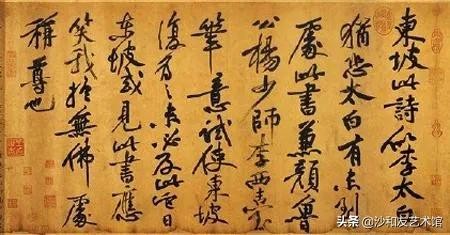 東坡此詩似李太白
猶恐太白有未到
處此書兼顏魯
公楊少師李西臺
筆意試使東坡
復為之未必及此它日
東坡或見此書應
笑我於無佛處
稱尊也
头条 @沙和友艺术馆